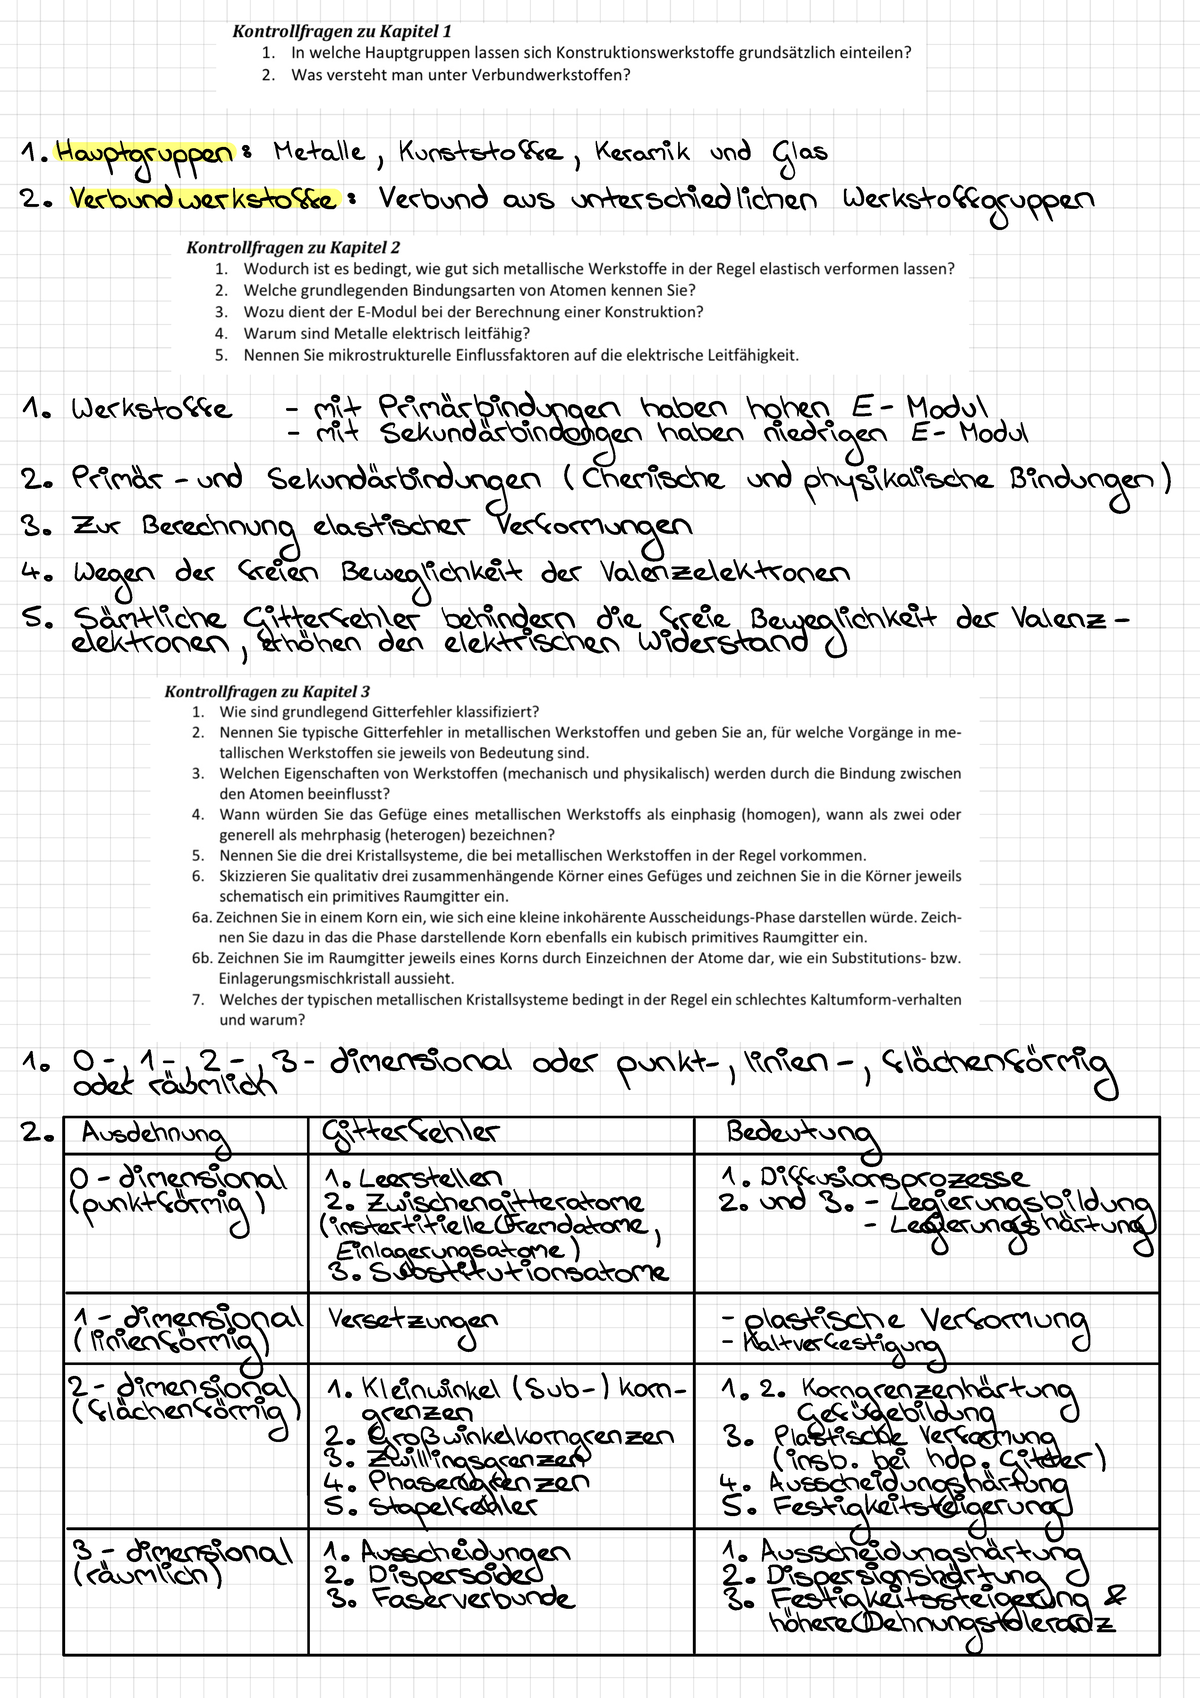 Kontrollfragen zu Kapitel 1
1. In welche Hauptgruppen lassen sich Konstruktionswerkstoffe grundsätzlich einteilen?
2. Was versteht man unter Verbundwerkstoffen?
1. Hauptgruppen: Metalle, Kunststoffe, Keramik und Glas
2. Verbundwerkstoffe: Verbund aus unterschiedlichen Werkstoffgruppen
Kontrollfragen zu Kapitel 2
1. Wodurch ist es bedingt, wie gut sich metallische Werkstoffe in der Regel elastisch verformen lassen?
2. Welche grundlegenden Bindungsarten von Atomen kennen Sie?
3. Wozu dient der E-Modul bei der Berechnung einer Konstruktion?
4. Warum sind Metalle elektrisch leitfähig?
5. Nennen Sie mikrostrukturelle Einflussfaktoren auf die elektrische Leitfähigkeit.
1. Werkstoffe - mit Primärbindungen haben hohen E-Modul
- mit Sekundärbindungen haben niedrigen E-Modul
2. Primär- und Sekundärbindungen (Chemische und physikalische Bindungen)
3. Zur Berechnung elastischer Verformungen
4. Wegen der freien Beweglichkeit der Valenzelektronen
5. Sämtliche Gitterfehler behindern die freie Beweglichkeit der Valenz-
elektronen, erhöhen den elektrischen Widerstand
Kontrollfragen zu Kapitel 3
1. Wie sind grundlegend Gitterfehler klassifiziert?
2. Nennen Sie typische Gitterfehler in metallischen Werkstoffen und geben Sie an, für welche Vorgänge in me-
tallischen Werkstoffen sie jeweils von Bedeutung sind.
3. Welchen Eigenschaften von Werkstoffen (mechanisch und physikalisch) werden durch die Bindung zwischen
den Atomen beeinflusst?
4. Wann würden Sie das Gefüge eines metallischen Werkstoffs als einphasig (homogen), wann als zwei oder
generell als mehrphasig (heterogen) bezeichnen?
5. Nennen Sie die drei Kristallsysteme, die bei metallischen Werkstoffen in der Regel vorkommen.
6. Skizzieren Sie qualitativ drei zusammenhängende Körner eines Gefüges und zeichnen Sie in die Körner jeweils
schematisch ein primitives Raumgitter ein.
6a. Zeichnen Sie in einem Korn ein, wie sich eine kleine inkohärente Ausscheidungs-Phase darstellen würde. Zeich-
nen Sie dazu in das die Phase darstellende Korn ebenfalls ein kubisch primitives Raumgitter ein.
6b. Zeichnen Sie im Raumgitter jeweils eines Korns durch Einzeichnen der Atome dar, wie ein Substitutions- bzw.
Einlagerungsmischkristall aussieht.
7. Welches der typischen metallischen Kristallsysteme bedingt in der Regel ein schlechtes Kaltumform-verhalten
und warum?
1. 0-, 1-, 2-, 3-dimensional oder punkt-, linien-, flächenförmig
oder räumlich
2. Ausdehnung Gitterfehler Bedeutung
0-dimensional
(punktförmig)
1. Leerstellen
2. Zwischengitteratome
(instertitielle Fremdatome,
Einlagerungsatome)
3. Substitutionsatome
1. Diffusionsprozesse
2. und 3. - Legierungsbildung
- Legierungshärtung
1-dimensional
(linienförmig)
Versetzungen
- plastische Verformung
- Kaltverfestigung
2-dimensional
(flächenförmig)
1. Kleinwinkel (Sub-) korn-
grenzen
2. Großwinkelkorngrenzen
3. Zwillingsgrenzen
4. Phasengrenzen
5. Stapelfehler
1. 2. Korngrenzenhärtung
Gefügebildung
3. Plastische Verformung
(insb. bei hdp. Gitter)
4. Ausscheidungshärtung
5. Festigkeitsteigerung
3-dimensional
(räumlich)
1. Ausscheidungen
2. Dispersoide
3. Faserverbunde
1. Ausscheidungshärtung
2. Dispersionshärtung
3. Festigkeitssteigerung &
höhere Dehnungstoleranz